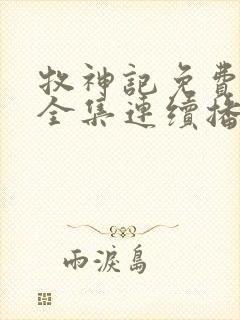 牧神記免費
全集連續播
雨淚島